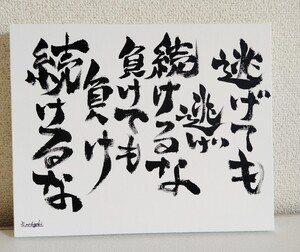 逃げても
逃げ
続けるな
負けても
負け
続けるな